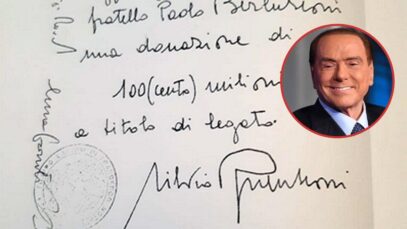 fratello Paolo Berlusconi
una donazione di
100 (cento) milioni
a titolo di legato.
Silvio Berlusconi